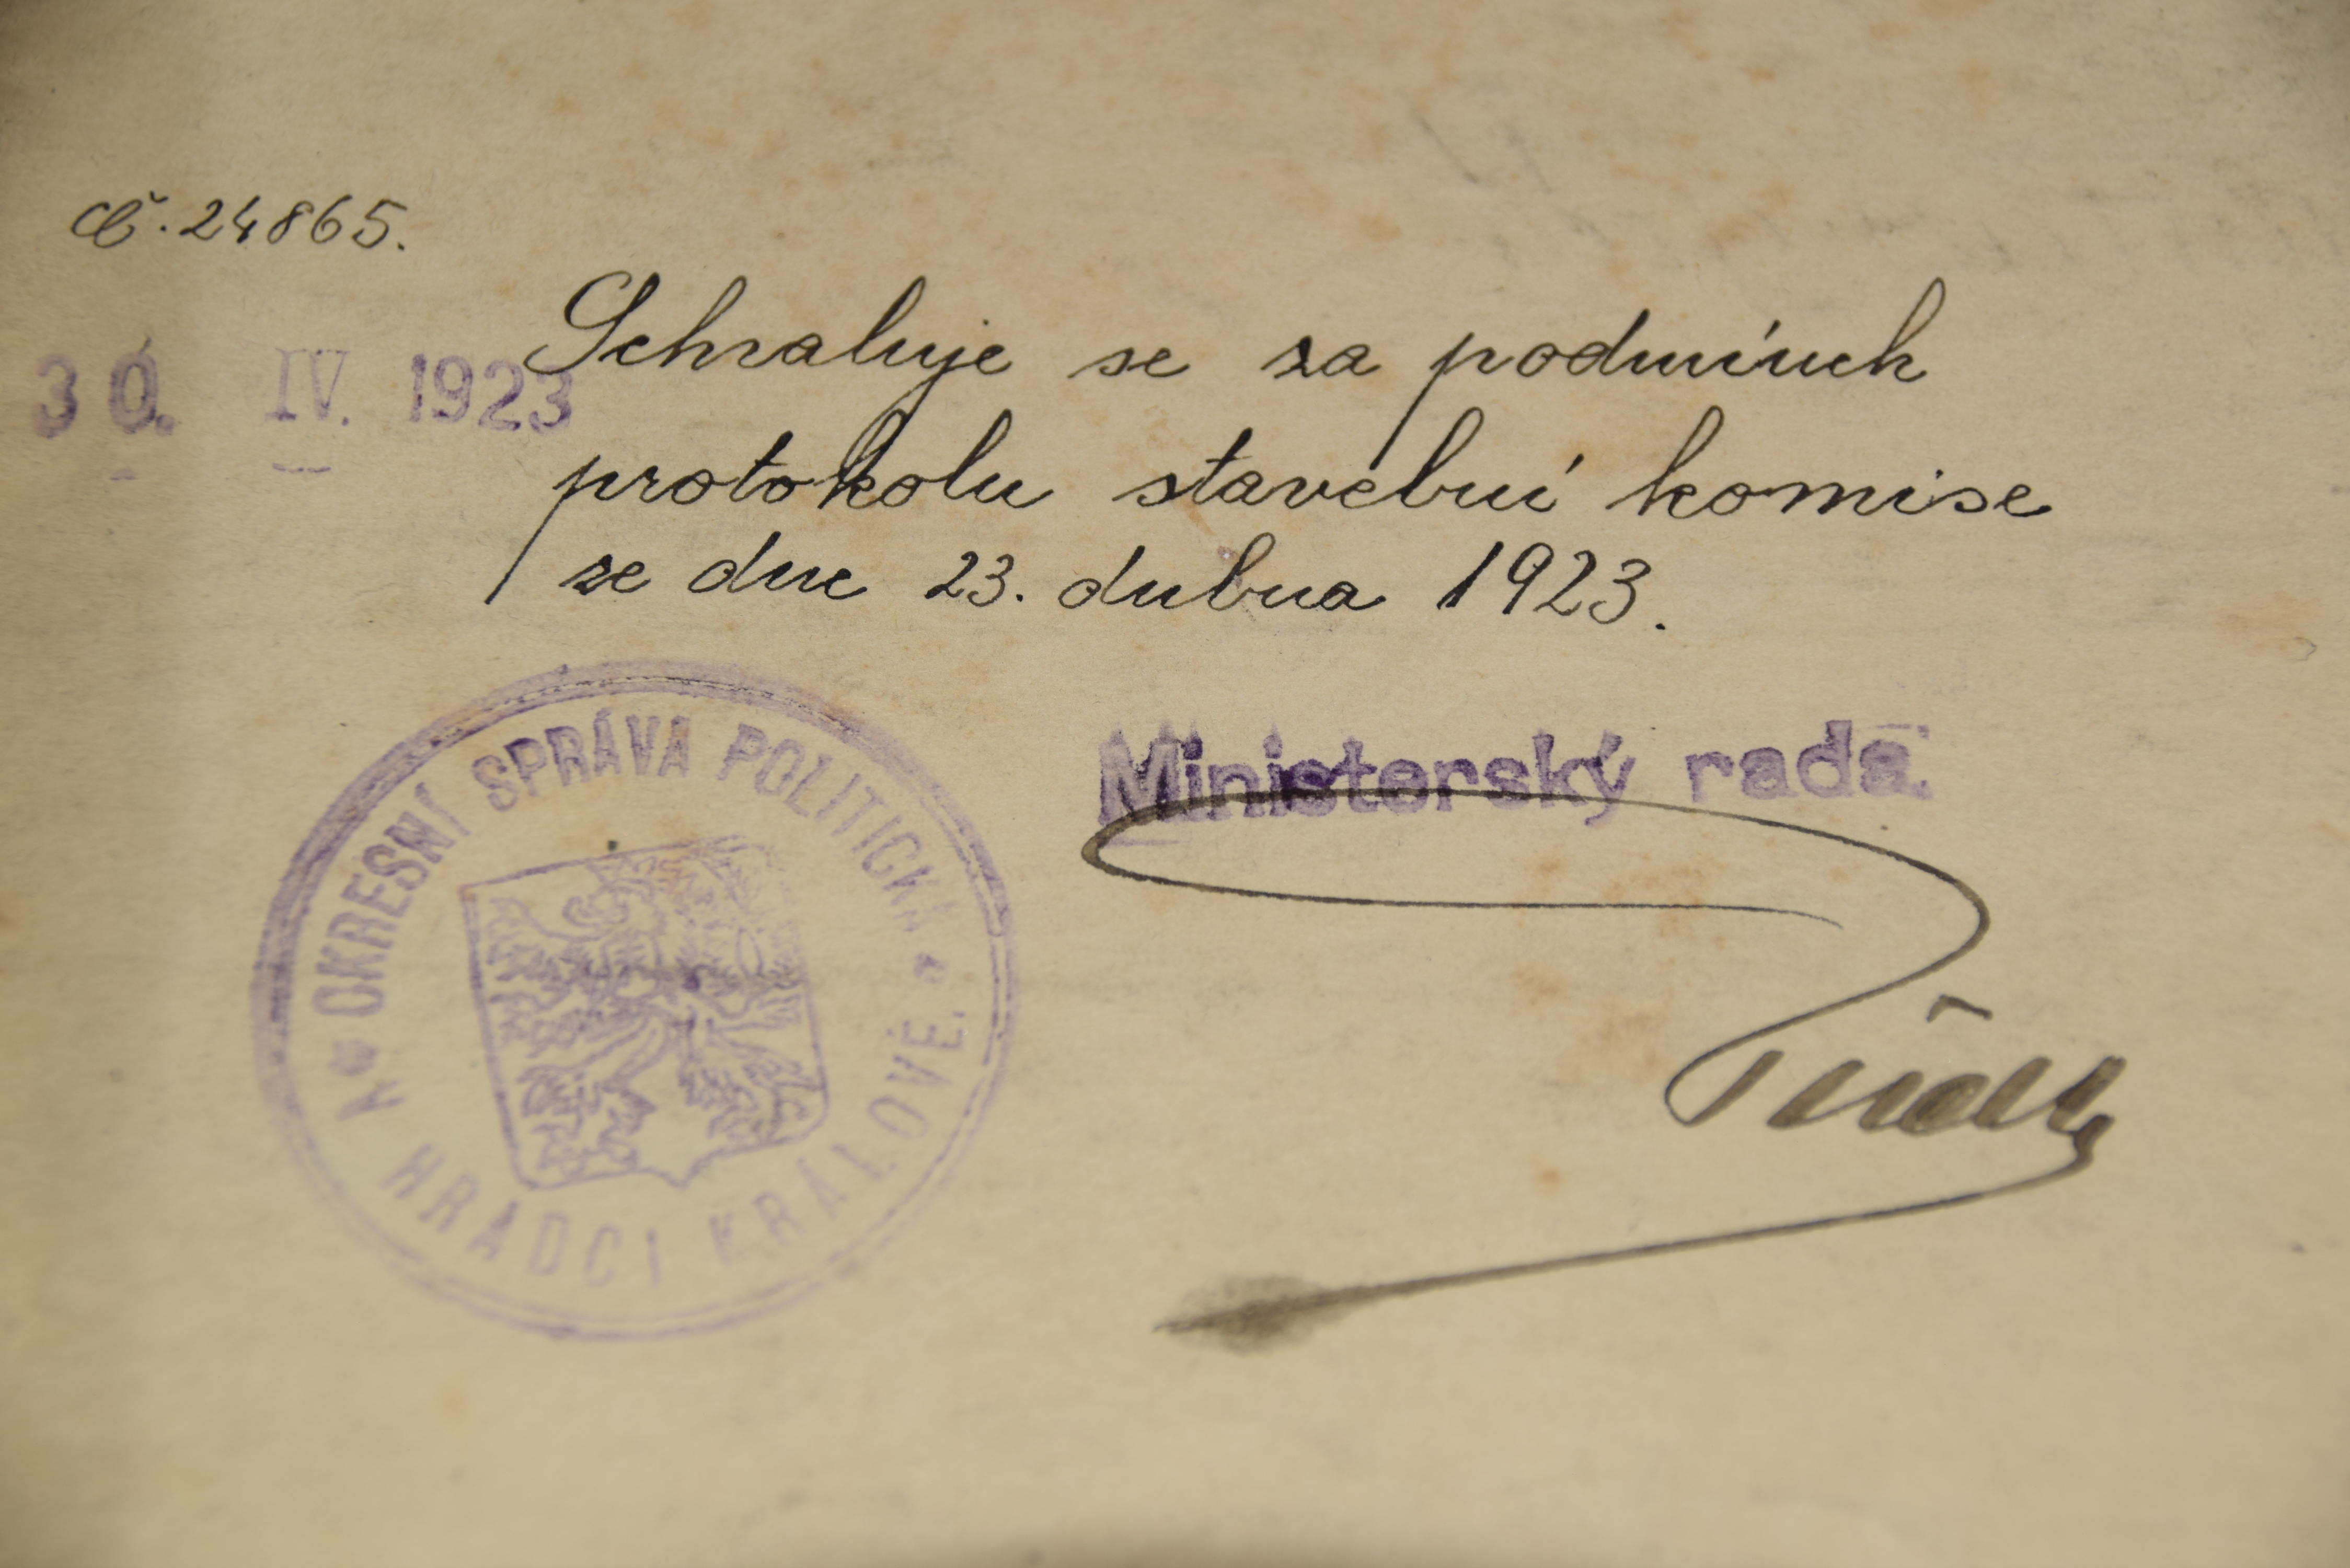 Č. 24865.
30. IV. 1923
Schvaluje se za podmínek
protokolu stavební komise
ze dne 23. dubna 1923.
OKRESNÍ SPRÁVA POLITICKÁ
V HRADCI KRÁLOVÉ.
Ministerský rada: